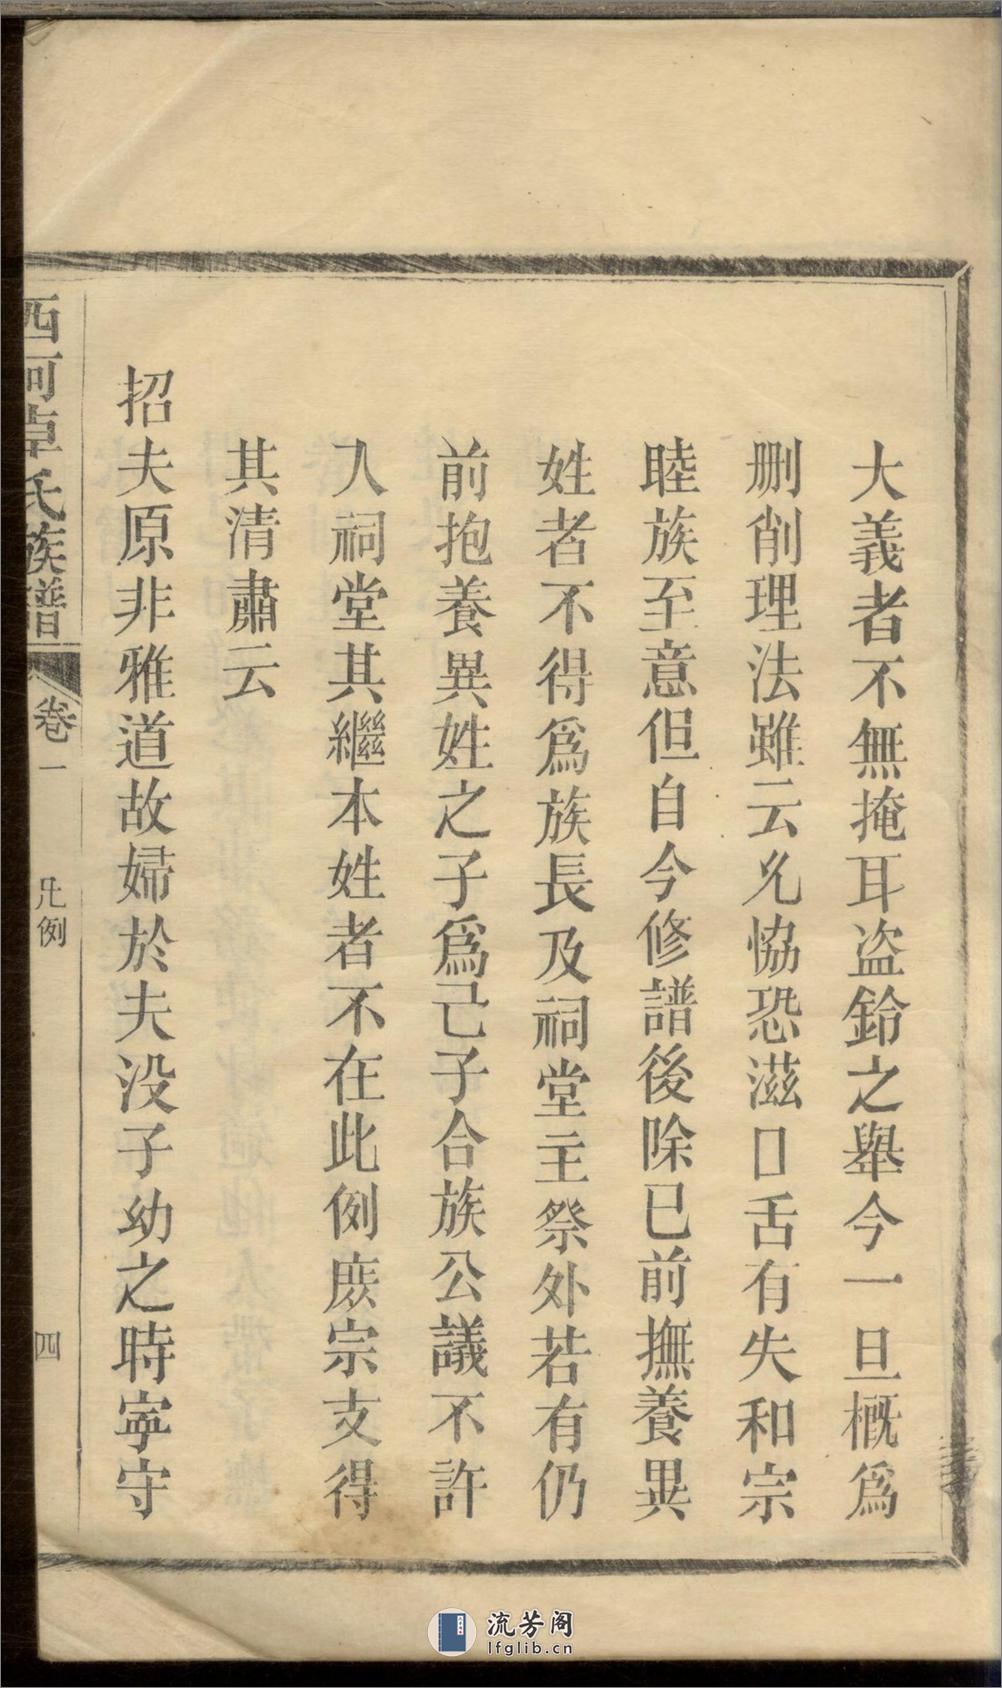 大義者不無掩耳盗鈴之舉今一旦概爲
删削理法雖云允協恐滋口舌有失和宗
睦族至意但自今修譜後除已前撫養異
姓者不得爲族長及祠堂主祭外若有仍
前抱養異姓之子爲己子合族公議不許
入祠堂其繼本姓者不在此例庶宗支得
其清肅云
招夫原非雅道故婦於夫没子幼之時寧守
西河卓氏族譜
卷一
凡例
四
流芳阁
lfglib.cn